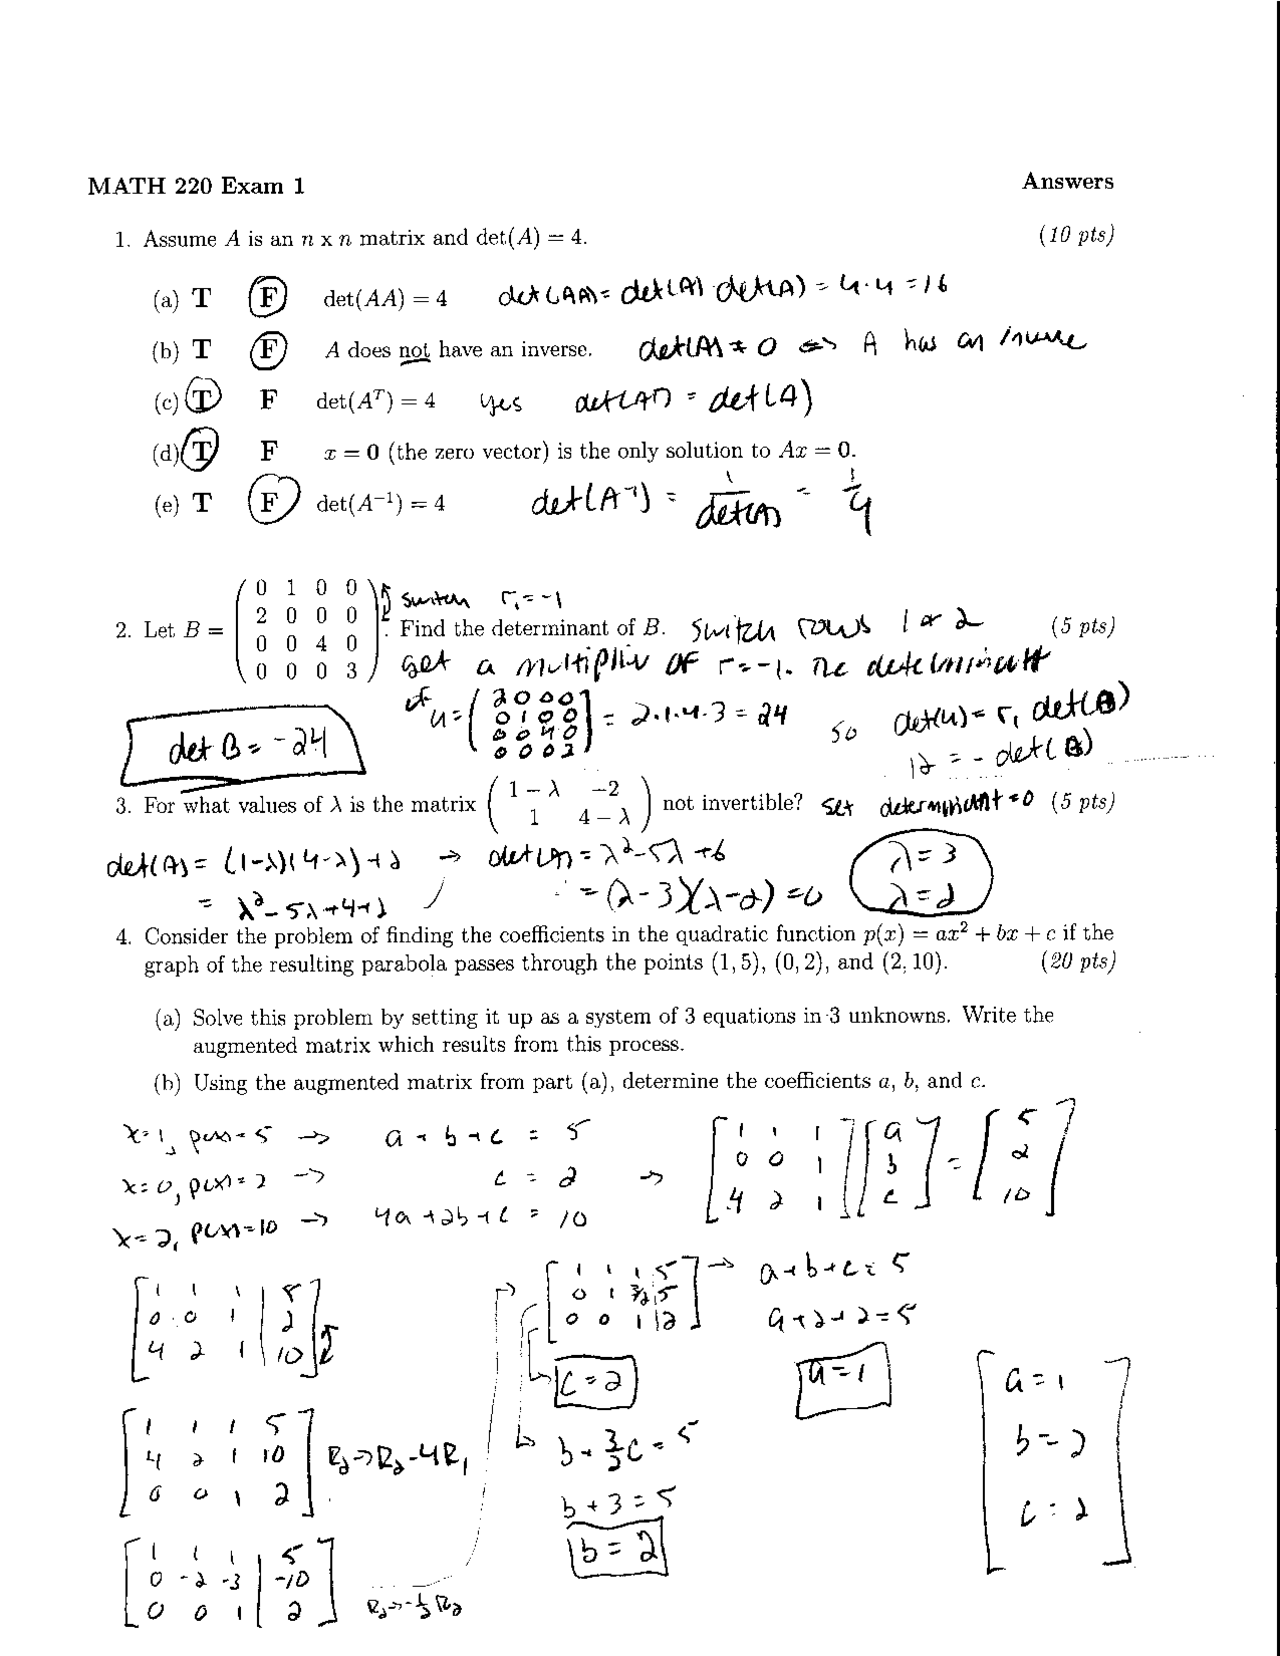 MATH 220 Exam 1 Answers
1. Assume A is an n x n matrix and det(A) = 4. (10 pts)
(a) T F det(AA) = 4 det(AA) = det(A) det(A) = 4·4 = 16
(b) T F A does not have an inverse. det(A) ≠ 0 => A has an inverse
(c) T F det(A^T) = 4 yes det(A^T) = det(A)
(d) T F x = 0 (the zero vector) is the only solution to Ax = 0.
(e) T F det(A^-1) = 4 det(A^-1) = 1/det(A) = 1/4
0 1 0 0
2 0 0 0 switch r₁ = -1
2. Let B = . Find the determinant of B. switch rows 1 or 2 (5 pts)
0 0 4 0
0 0 0 3 get a multiplier of r = -1. The determinant
of u = [2 0 0 0; 0 1 0 0; 0 0 4 0; 0 0 0 3] = 2·1·4·3 = 24 so det(u) = r₁ det(B)
det B = -24 12 = - det(B)
3. For what values of λ is the matrix ( 1 − λ −2 ; 1 4 − λ ) not invertible? set determinant = 0 (5 pts)
det(A) = (1-λ)(4-λ)+2 → det(A) = λ²-5λ+6 λ = 3
= λ²-5λ+4+2 = (λ-3)(λ-2) = 0 λ = 2
4. Consider the problem of finding the coefficients in the quadratic function p(x) = ax² + bx + c if the
graph of the resulting parabola passes through the points (1, 5), (0, 2), and (2, 10). (20 pts)
(a) Solve this problem by setting it up as a system of 3 equations in 3 unknowns. Write the
augmented matrix which results from this process.
(b) Using the augmented matrix from part (a), determine the coefficients a, b, and c.
x=1, p(x)=5 → a + b + c = 5 [1 1 1] [a] [5]
x=0, p(x)=2 → c = 2 → [0 0 1] [b] = [2]
x=2, p(x)=10 → 4a + 2b + c = 10 [4 2 1] [c] [10]
1 1 1 | 5
0 0 1 | 2
4 2 1 | 10
1 1 1 5
4 2 1 10 R₂→R₂-4R₁
0 0 1 2
1 1 1 | 5
0 -2 -3 | -10
0 0 1 | 2 R₂→-1/2 R₂
1 1 1 5 → a+b+c = 5
0 1 3/2 5
0 0 1 | 2 a+2+2 = 5
c = 2 a = 1
b + 3/2 c = 5
b + 3 = 5
b = 2
a = 1
b = 2
c = 2